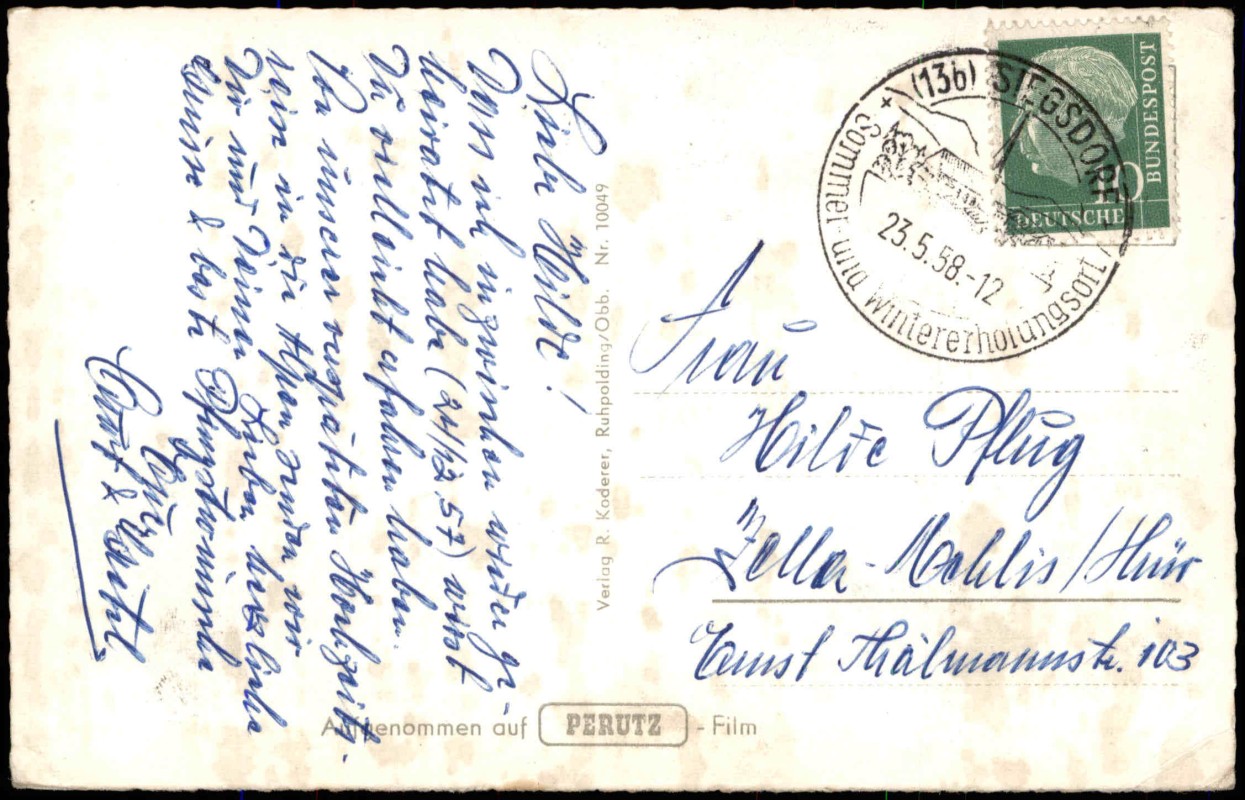 Liebe Hilde!
Dass ich inzwischen wieder ge-
heiratet habe (24/12.57) wirst
Du vielleicht erfahren haben.
Von unserer verspäteten Hochzeits-
reise in die Alpen senden wir
Dir und Deinen Lieben herzliche
Grüsse & beste Pfingstwünsche
Eure
Verlag R. Koderer, Ruhpolding/Obb. Nr. 10049
(13b) SIEGSDORF
Sommer- und Wintererholungsort
23.5.58.-12
10
DEUTSCHE
BUNDESPOST
Frau
Hilde Pflug
Zella-Mehlis/Thür
Ernst Thälmannstr. 103
Aufgenommen auf PERUTZ - Film